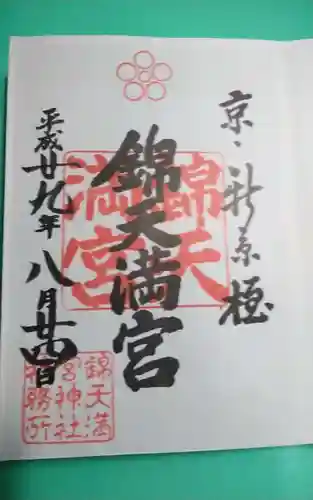 京・新京極
錦天満宮
平成廿九年八月廿四日
錦天
満宮
錦天満
宮神社
社務所